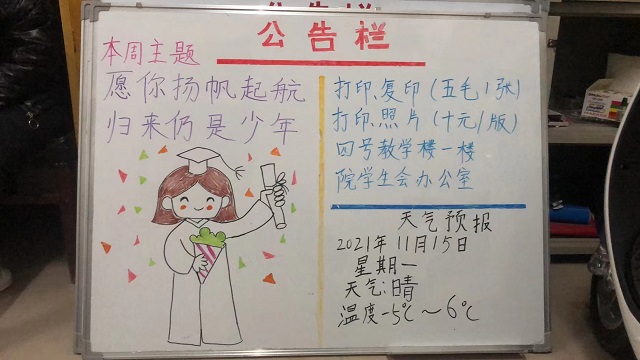 公告栏
本周主题
愿你扬帆起航
归来仍是少年
打印、复印（五毛/张）
打印、照片（十元/版）
四号教学楼一楼
院学生会办公室
天气预报
2021年11月15日
星期一
天气:晴
温度-5℃～6℃